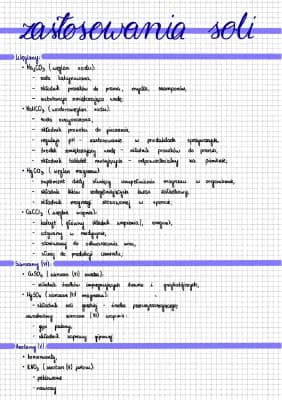 zastosowania soli
Węglany:
• Na₂CO₃ (węglan sodu):
- soda kalcynowana,
- składnik proszków do prania, mydła, szamponów,
- substancja zmiękczająca wodę.
• NaHCO₃ (wodorowęglan sodu):
- soda oczyszczona,
- składnik proszku do pieczenia,
- regulacji pH - zastosowanie w produktach spożywczych,
- środek zmiękczający wodę - składnik proszków do prania,
- składnik tabletek musujących - odpowiedzialny za pienienie,
• MgCO₃ (węglan magnezu):
- suplement diety służący uzupełnianiu magnezu w organizmie,
- składnik leków zobojętniających kwas żołądkowy,
- składnik magnezji stosowanej w sporcie,
• CaCO₃ (węglan wapnia):
- kalcyt (główny składnik wapienia),
- używany w medycynie,
- stosowany do odkwaszania
- służy do produkcji cementu,
Siarczany (VI):
• CuSO₄ (siarczan (VI) miedzi):
- składnik środków impregnujących drewno i grzybobójczych,
• MgSO₄ (siarczan (VI) magnezu):
- składnik soli gorzkiej - środka przeczyszczającego
uwodniony siarczan (VI) wapnia:
- gips palony,
- składnik zaprawy gipsowej
Azotany (V)
• konserwanty,
• KNO₃ (azotan (V) potasu):
- peklowanie
- nawozy